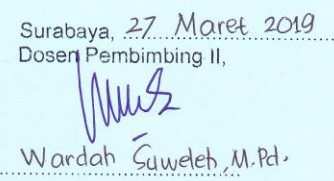 Surabaya, 27 Maret 2019
Dosen Pembimbing II,
Wardah Suweleh, M.Pd.